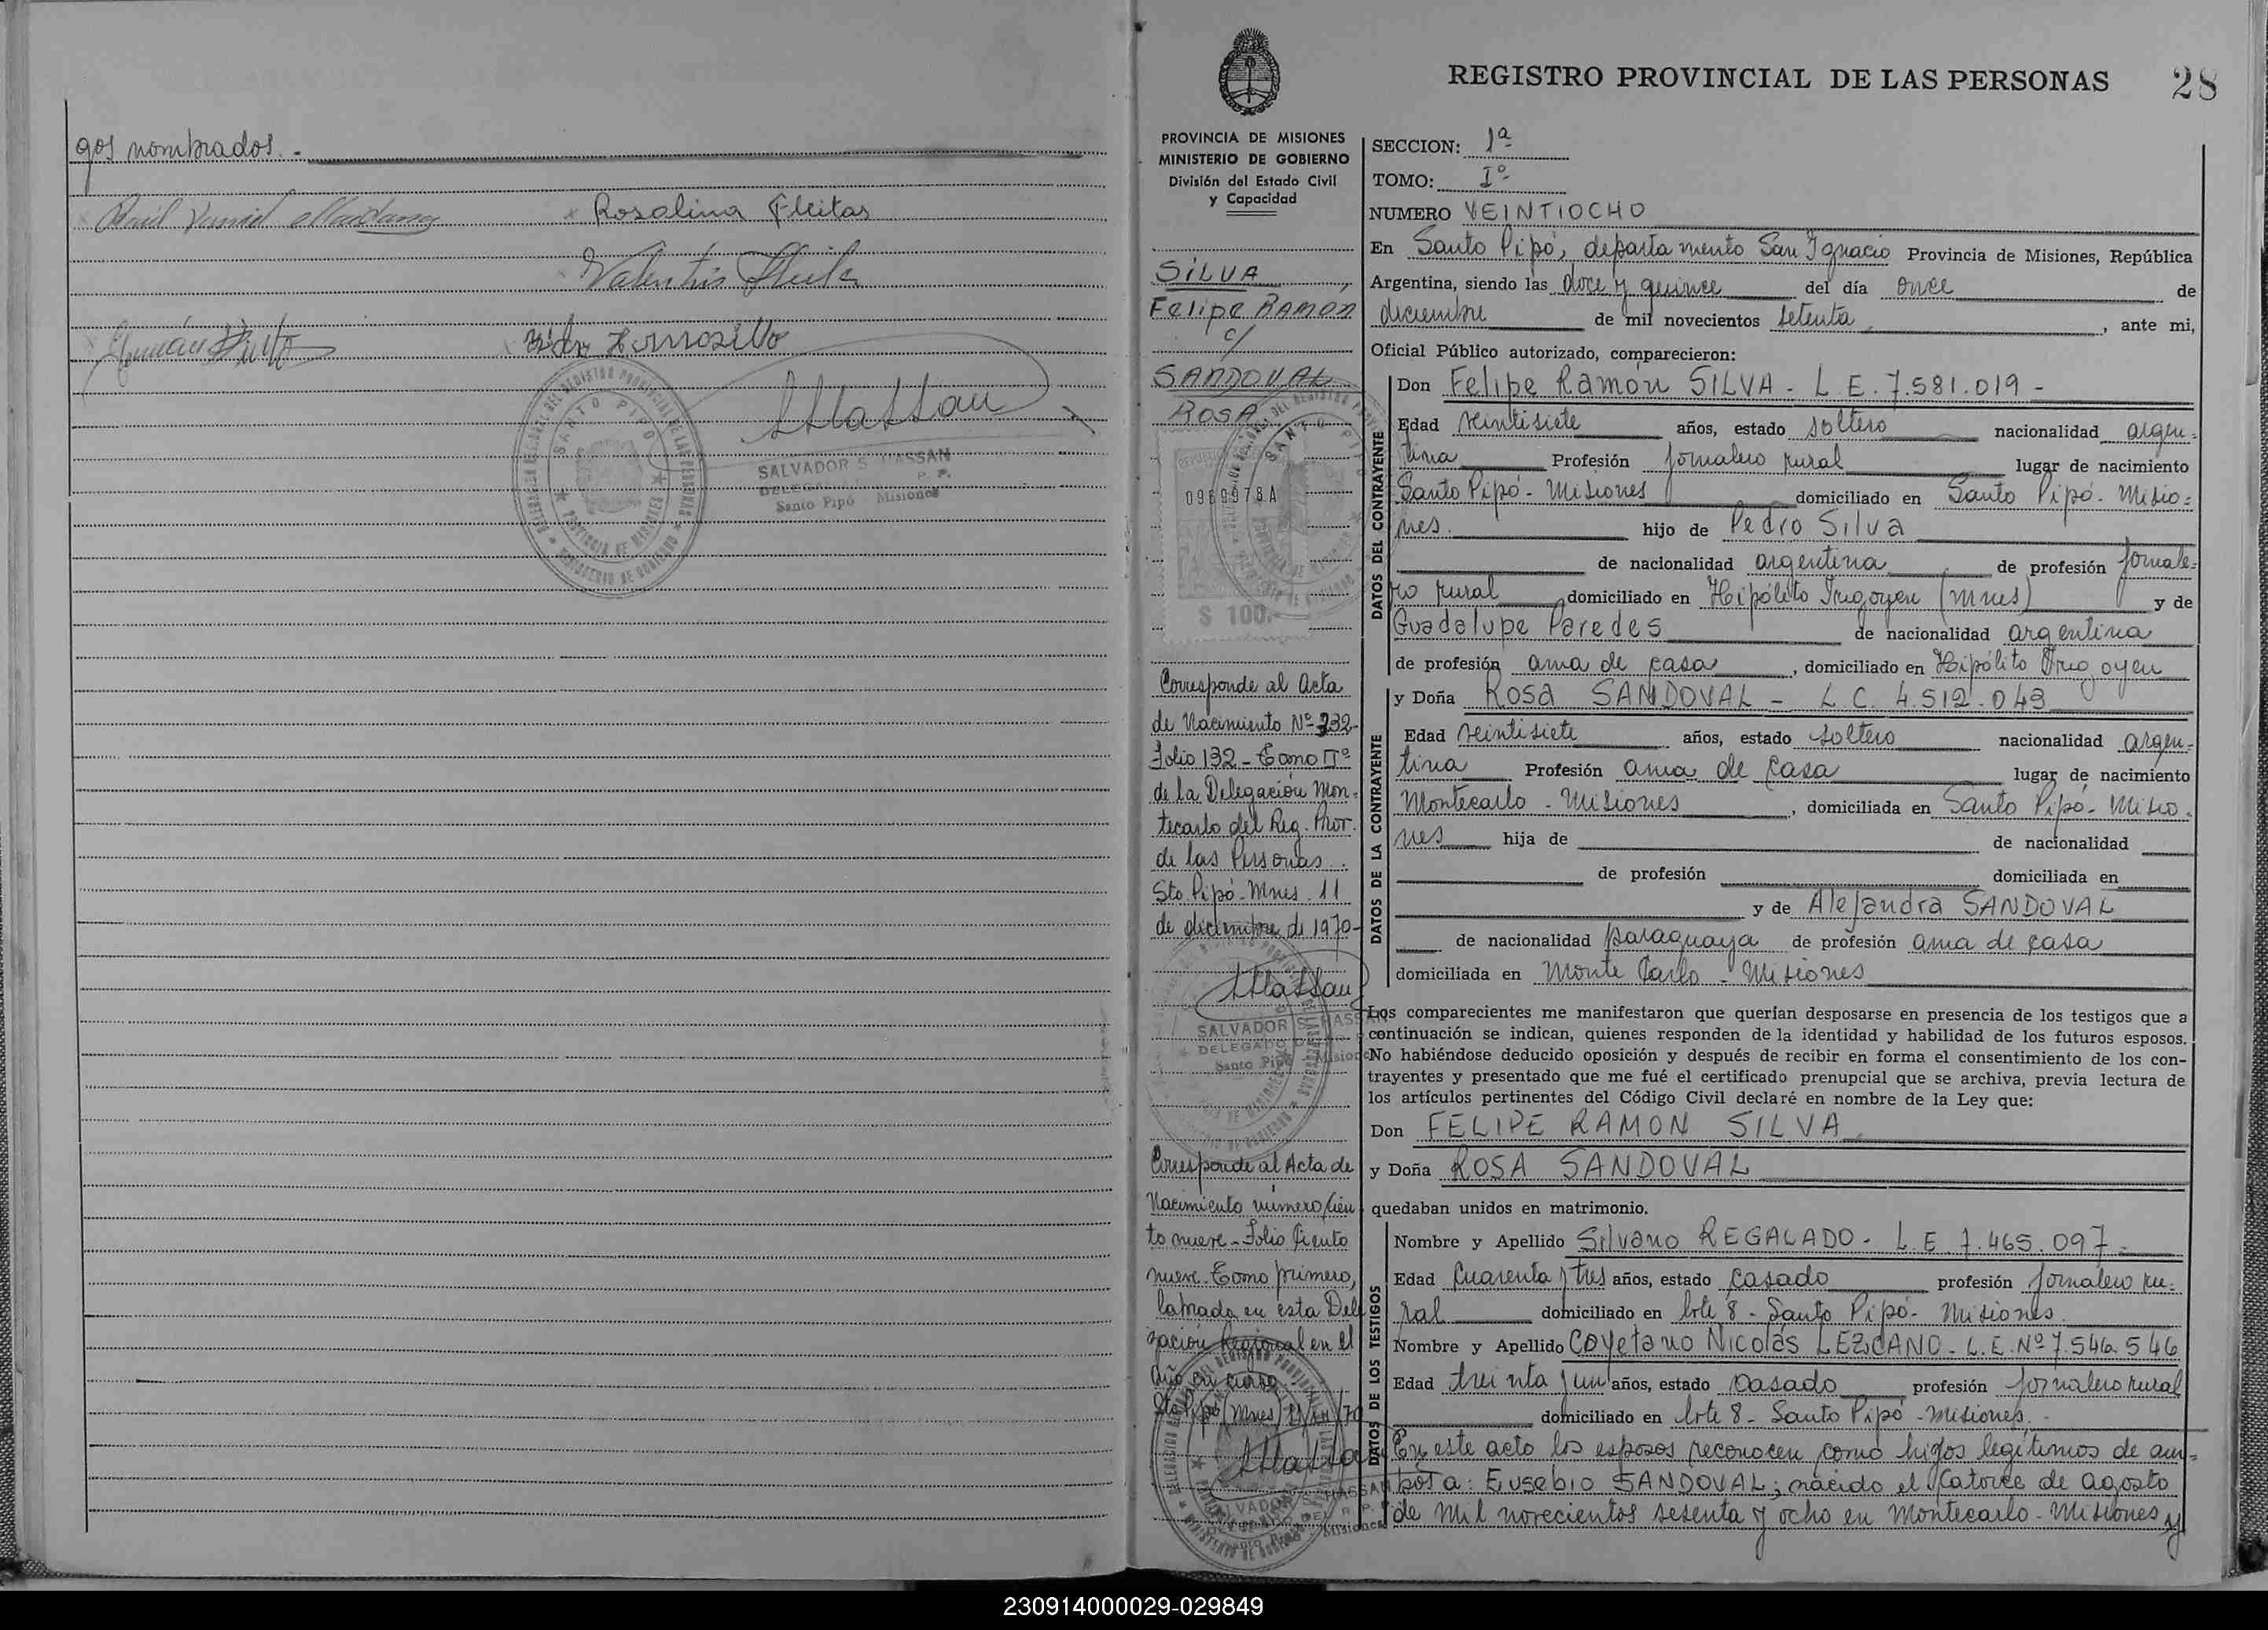 gos nombrados. -
Rosalina Fleitas
SALVADOR S. HASSAN
Santo Pipó Misiones
REGISTRO PROVINCIAL DE LAS PERSONAS 28
PROVINCIA DE MISIONES
MINISTERIO DE GOBIERNO
División del Estado Civil
y Capacidad
SILVA
Felipe RAMON
c/
SANDOVAL
ROSA
0969978A
$ 100.-
Corresponde al Acta
de Nacimiento Nº 232-
Folio 132 - Tomo IIº
de la Delegación Mon-
tecarlo del Reg. Prov.
de las Personas.
Sto. Pipó - Mnes. 11
de diciembre de 1970-
SALVADOR S. HASSAN
DELEGADO
Santo Pipó Misiones
Corresponde al Acta de
Nacimiento número cien
to nueve - Folio Ciento
nueve - Tomo primero,
labrada en esta Dele
gación Regional en el
año en curso
Sto Pipó (Mnes)
SECCION: 1ª
TOMO: Iº
NUMERO VEINTIOCHO
En Santo Pipó, departamento San Ignacio Provincia de Misiones, República
Argentina, siendo las doce y quince del día once de
diciembre de mil novecientos setenta, ante mi,
Oficial Público autorizado, comparecieron:
DATOS DEL CONTRAYENTE
Don Felipe Ramón SILVA - L.E. 7.581.019 -
Edad veintisiete años, estado soltero nacionalidad argen-
tina Profesión jornalero rural lugar de nacimiento
Santo Pipó - Misiones domiciliado en Santo Pipó - Misio-
nes. hijo de Pedro Silva
de nacionalidad argentina de profesión jornale-
ro rural domiciliado en Hipólito Irigoyen (Mnes) y de
Guadalupe Paredes de nacionalidad argentina
de profesión ama de casa, domiciliado en Hipólito Irigoyen
DATOS DE LA CONTRAYENTE
y Doña Rosa SANDOVAL - L.C. 4.512.043
Edad veintisiete años, estado soltero nacionalidad argen-
tina Profesión ama de casa lugar de nacimiento
Montecarlo - Misiones, domiciliada en Santo Pipó - Misio-
nes hija de de nacionalidad
de profesión domiciliada en
y de Alejandra SANDOVAL
de nacionalidad paraguaya de profesión ama de casa
domiciliada en Monte Carlo - Misiones
Los comparecientes me manifestaron que querían desposarse en presencia de los testigos que a
continuación se indican, quienes responden de la identidad y habilidad de los futuros esposos.
No habiéndose deducido oposición y después de recibir en forma el consentimiento de los con-
trayentes y presentado que me fué el certificado prenupcial que se archiva, previa lectura de
los artículos pertinentes del Código Civil declaré en nombre de la Ley que:
Don FELIPE RAMON SILVA
y Doña ROSA SANDOVAL
quedaban unidos en matrimonio.
DATOS DE LOS TESTIGOS
Nombre y Apellido Silvano REGALADO - L.E. 7.465.097 -
Edad cuarenta y tres años, estado casado profesión jornalero ru-
ral domiciliado en lote 8 - Santo Pipó - Misiones
Nombre y Apellido Cayetano Nicolás LEZCANO - L.E. Nº 7.546.546
Edad treinta y un años, estado casado profesión jornalero rural
domiciliado en lote 8 - Santo Pipó - Misiones. -
En este acto los esposos reconocen como hijos legítimos de am-
bos a: Eusebio SANDOVAL; nacido el catorce de agosto
de mil novecientos sesenta y ocho en Montecarlo - Misiones y
230914000029-029849